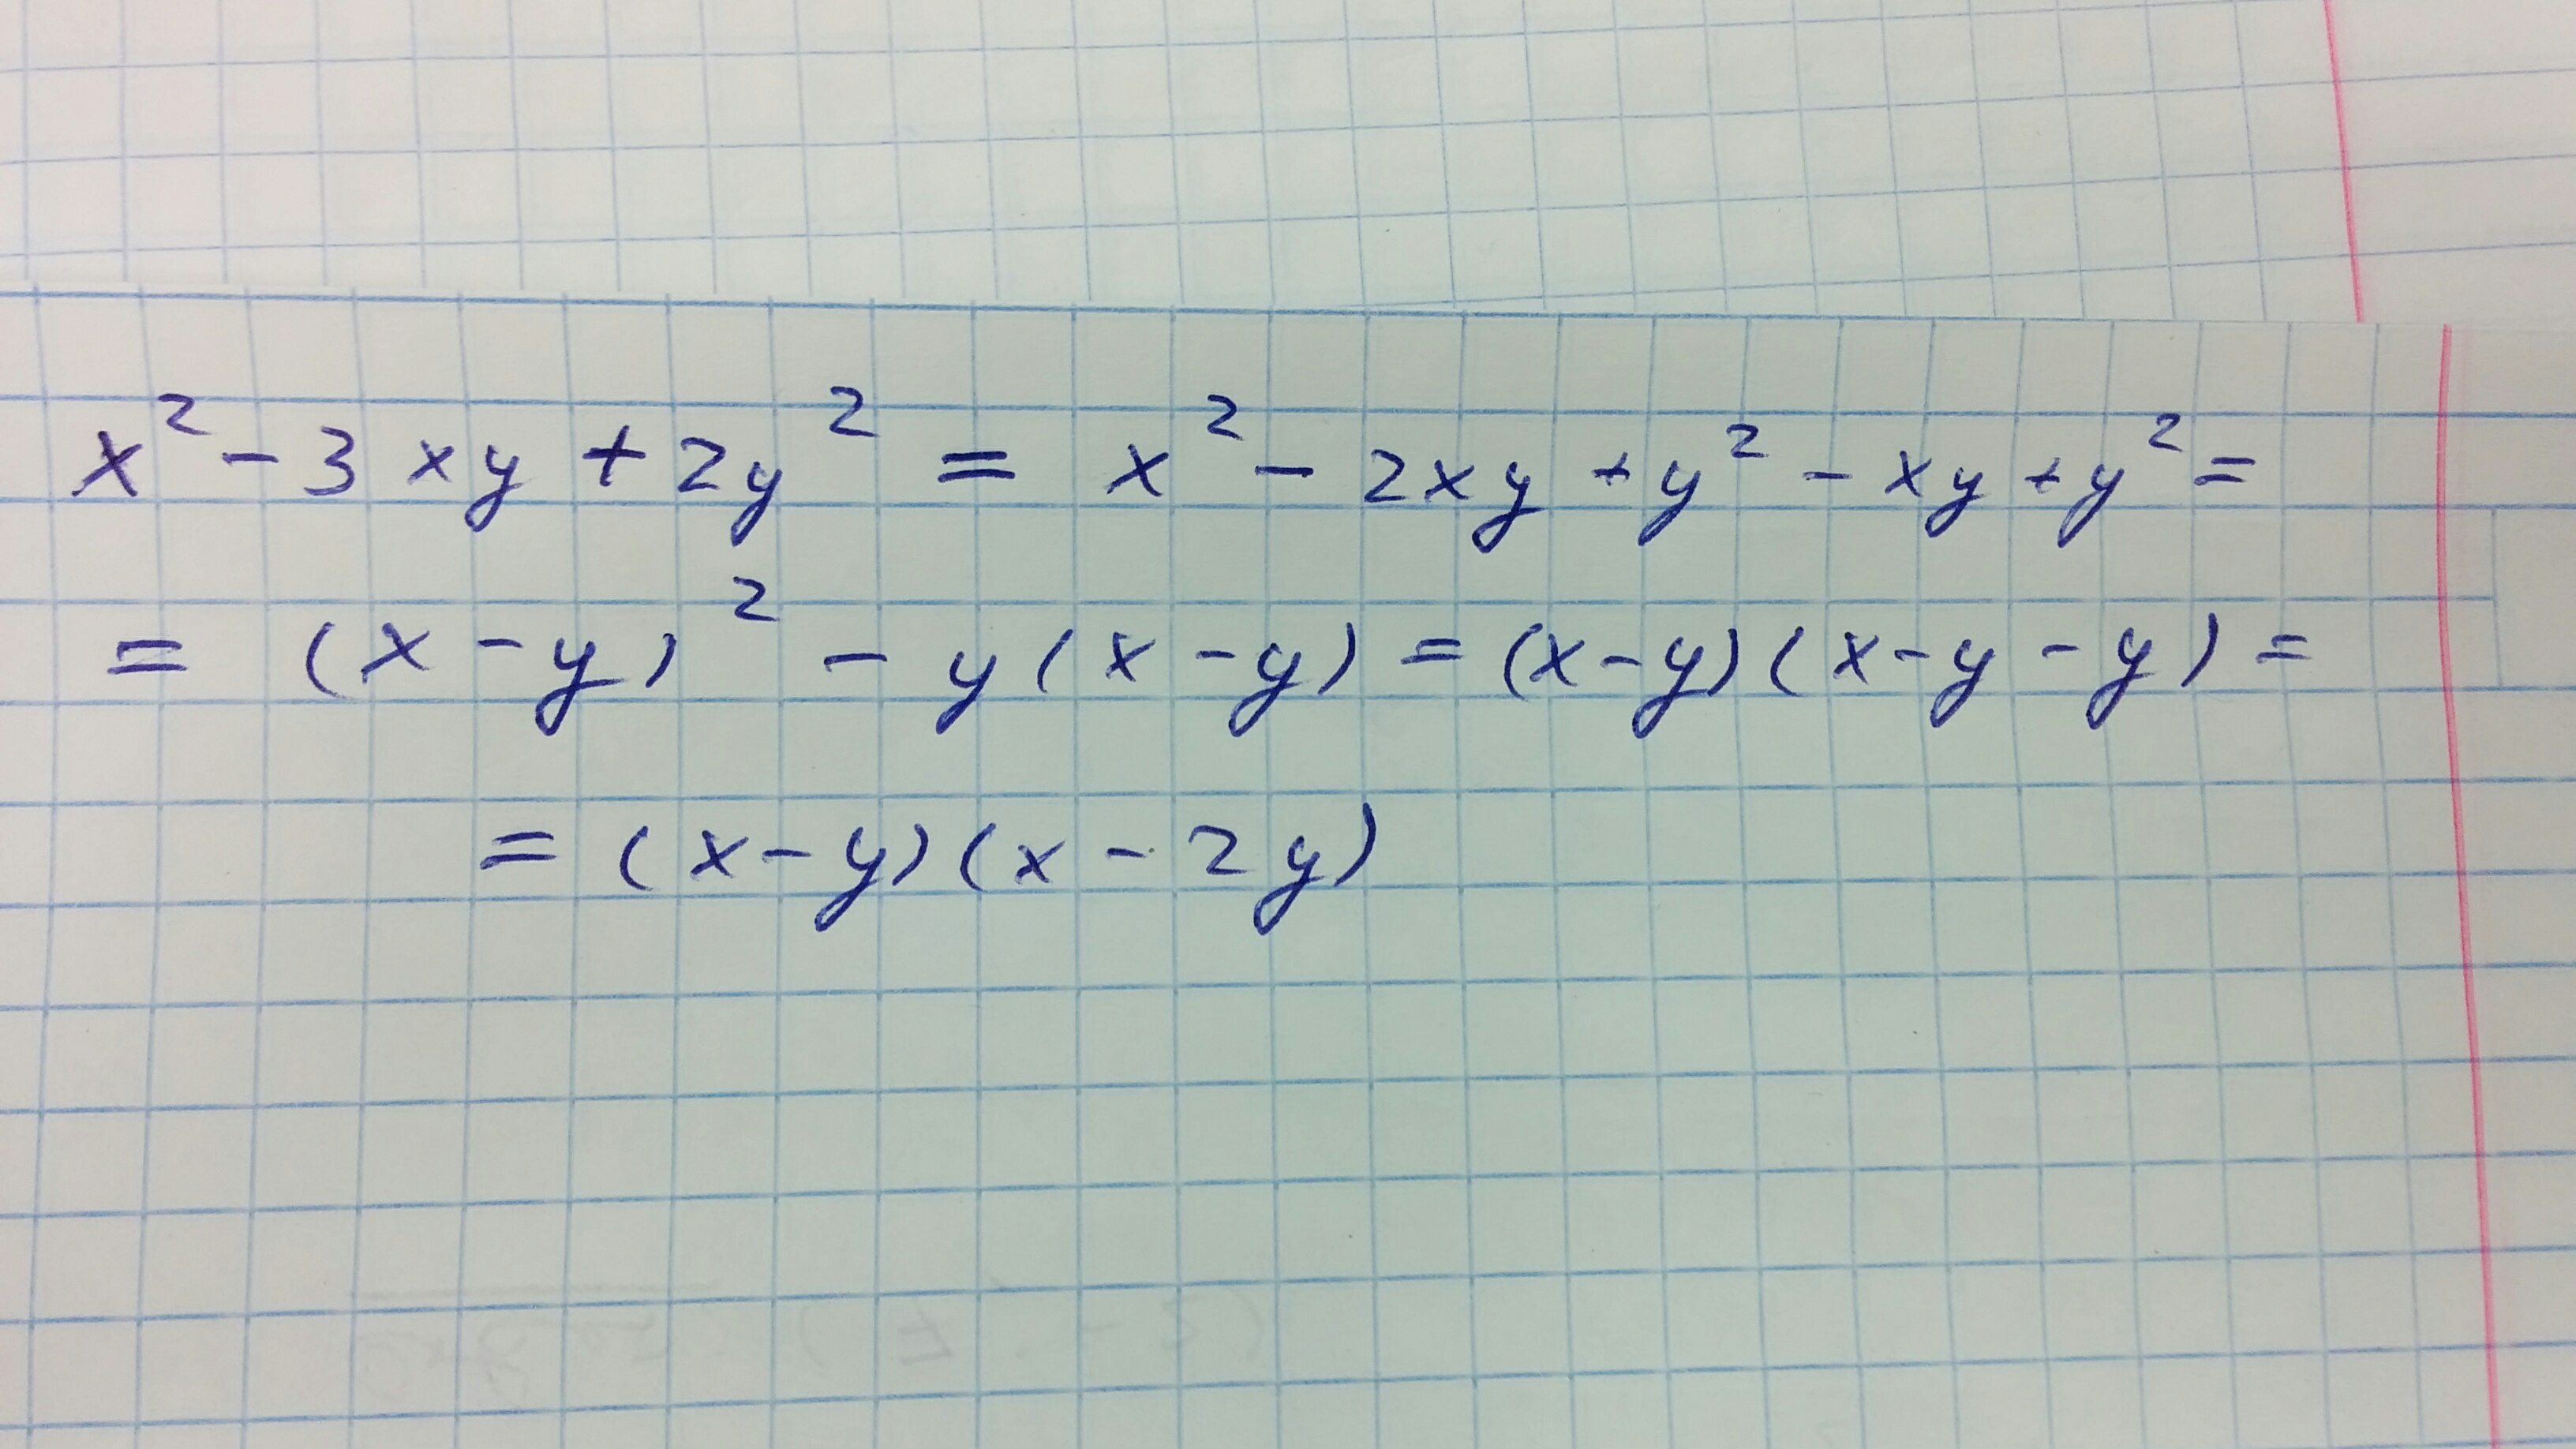 x² - 3xy + 2y² = x² - 2xy + y² - xy + y² =
= (x - y)² - y(x - y) = (x - y)(x - y - y) =
= (x - y)(x - 2y)